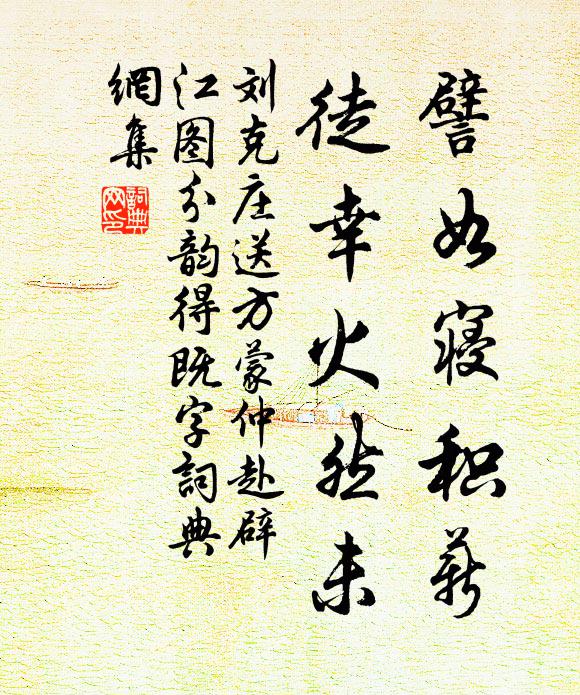 譬如寝积薪
徒幸火然未
刘克庄送方蒙仲赴辟
江图分韵得既字詞典
網集
詞典
网印